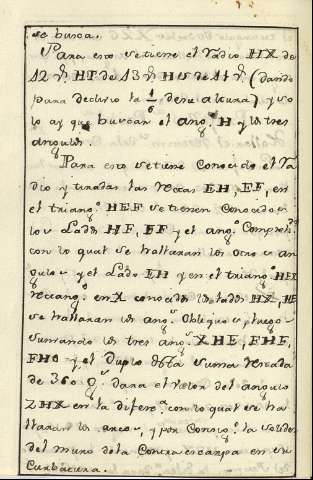 se busca.
Para esto se tiene el Radio HX de
12 v.s HT de 13 v.s HS de 11 v.s (dando
para declivio la 1/6 de su altura) y so
lo ay que buscar el ang.o H y los tres
angulos.
Para esto se tiene Conocido el Ra
dio y tiradas las rectas EH, EF, en
el triang.o HEF se tienen Conocidos
los Lados HF, EF y el ang.o Compreh.do
con lo qual se hallaran los otros an
gulos y el Lado EH y en el triang.o HEX
rectang.o en X conocidos los lados HX, HE
se hallaran los ang.s Obliquos y luego
sumando los tres ang.s XHE, EHF,
FHO y el Duplo desta suma restada
de 360 g.s dara el valor del angulo
ZHX en la difer.a con lo qual se ha
llaran los arcos, y por Consig.te la solidez
del muro de la Contra escarpa en su
Curbatura.